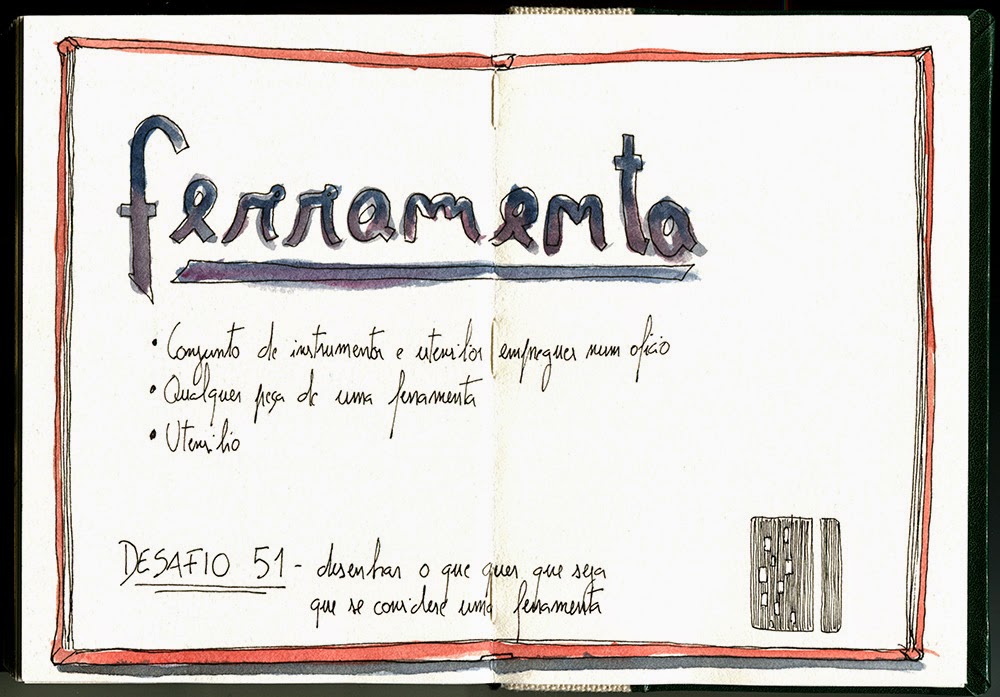 ferramenta
• Conjunto de instrumentos e utensílios empregues num ofício
• Qualquer peça de uma ferramenta
• Utensílio
DESAFIO 51 - desenhar o que quer que seja
que se considere uma ferramenta